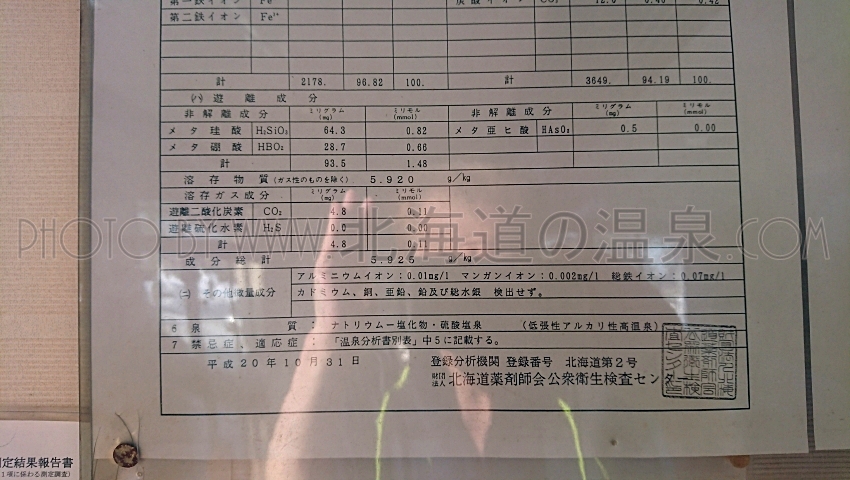 第一鉄イオン Fe 炭酸イオン CO₃ 12.0 0.40 0.42
第二鉄イオン Fe
計 2178. 96.82 100. 計 3649. 94.19 100.
(ハ) 遊離成分
非解離成分 ミリグラム (mg) ミリモル (mmol) 非解離成分 ミリグラム (mg) ミリモル (mmol)
メタ珪酸 H₂SiO₃ 64.3 0.82 メタ亜ヒ酸 HAsO₂ 0.5 0.00
メタ硼酸 HBO₂ 28.7 0.66
計 93.5 1.48
溶存物質(ガス性のものを除く) 5.920 g/kg
溶存ガス成分 ミリグラム (mg) ミリモル (mmol)
遊離二酸化炭素 CO₂ 4.8 0.11
遊離硫化水素 H₂S 0.0 0.00
PHOTO BY WWW.北海道の温泉.COM
計 4.8 0.11
成分総計 5.925 g/kg
(ニ) その他微量成分 アルミニウムイオン:0.01mg/l マンガンイオン:0.002mg/l 総鉄イオン:0.07mg/l
カドミウム、銅、亜鉛、鉛及び総水銀 検出せず。
6 泉質: ナトリウム-塩化物・硫酸塩泉 (低張性アルカリ性高温泉)
7 禁忌症、適応症: 「温泉分析書別表」中5に記載する。
平成20年10月31日 登録分析機関 登録番号 北海道第2号
財団法人 北海道薬剤師会公衆衛生検査センター
定結果報告書
1項に係わる測定調査)